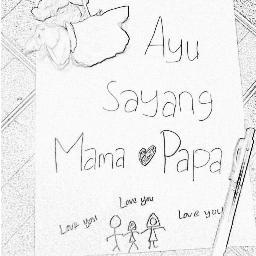 Ayu
Sayang
Mama Papa
Love you
Love you Love you